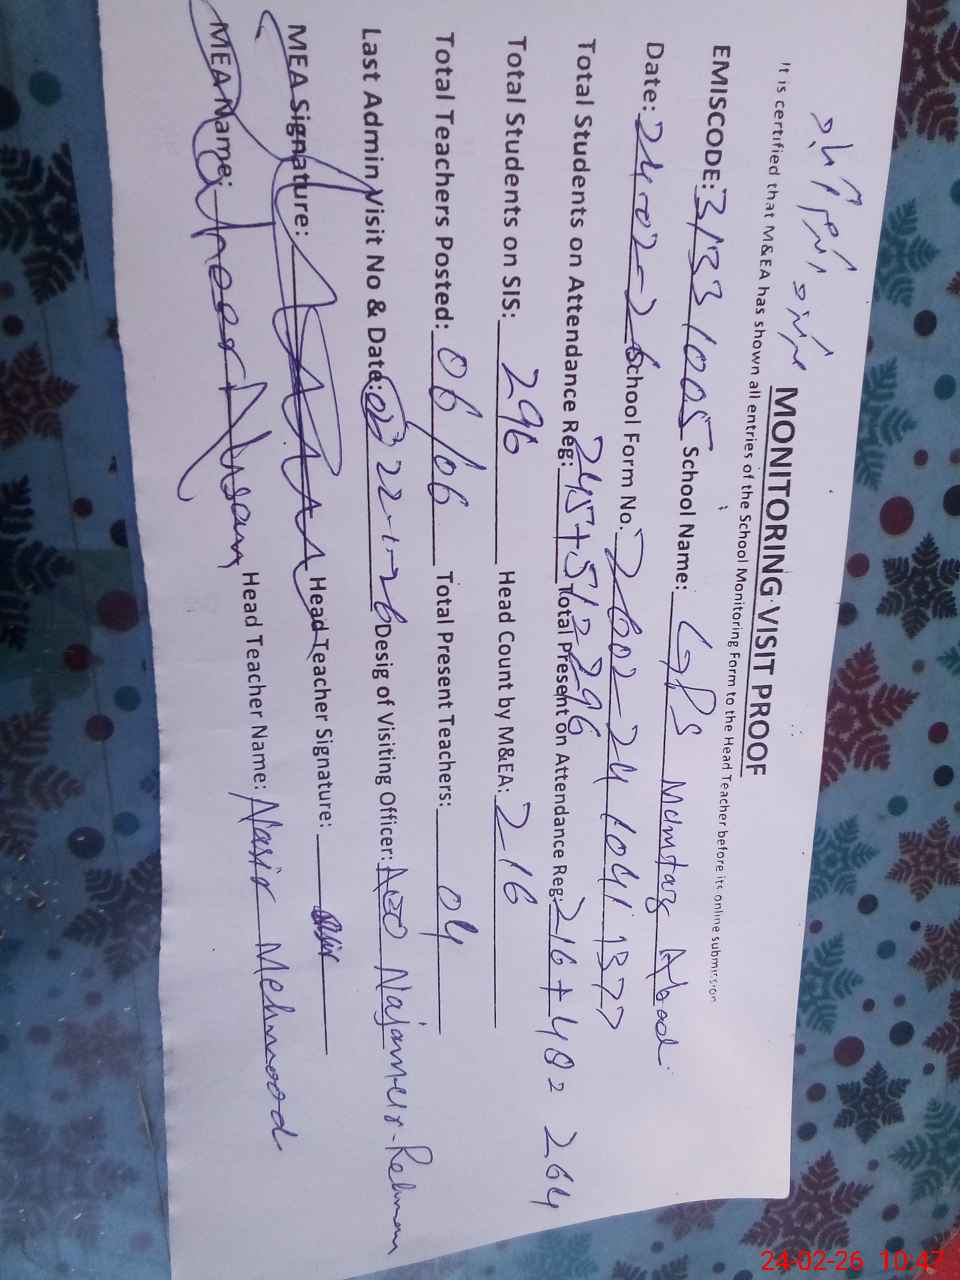 MONITORING VISIT PROOF
It is certified that M&EA has shown all entries of the School Monitoring Form to the Head Teacher before its online submission
EMISCODE: 31331005 School Name: GPS Mumtaz Abad
Date: 24-02-26 School Form No. 2602-241041377
Total Students on Attendance Reg: 245+51=296 Total Present on Attendance Reg: 216+48= 264
Total Students on SIS: 296 Head Count by M&EA: 216
Total Teachers Posted: 06/06 Total Present Teachers: 04
Last Admin Visit No & Date: 02 22-1-26 Desig of Visiting Officer: AEO Najam-ur-Rehman
MEA Signature: Head Teacher Signature:
MEA Name: Head Teacher Name: Nasir Mehmood
24-02-26 10:47